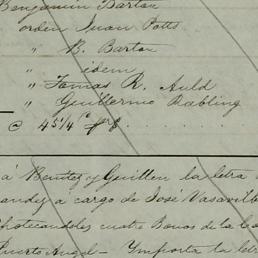 Benjamin Barton
orden Juan Potts
" B. Barton
" idem
" Tomas R. Auld
" Guillermo Rabling
@ 45 1/4
á Benitez y Guillen la letra
a cargo de José Vasavilb
hotecandoles cuatro Bonos de la Ca
Puerto Angel — Importa la letr